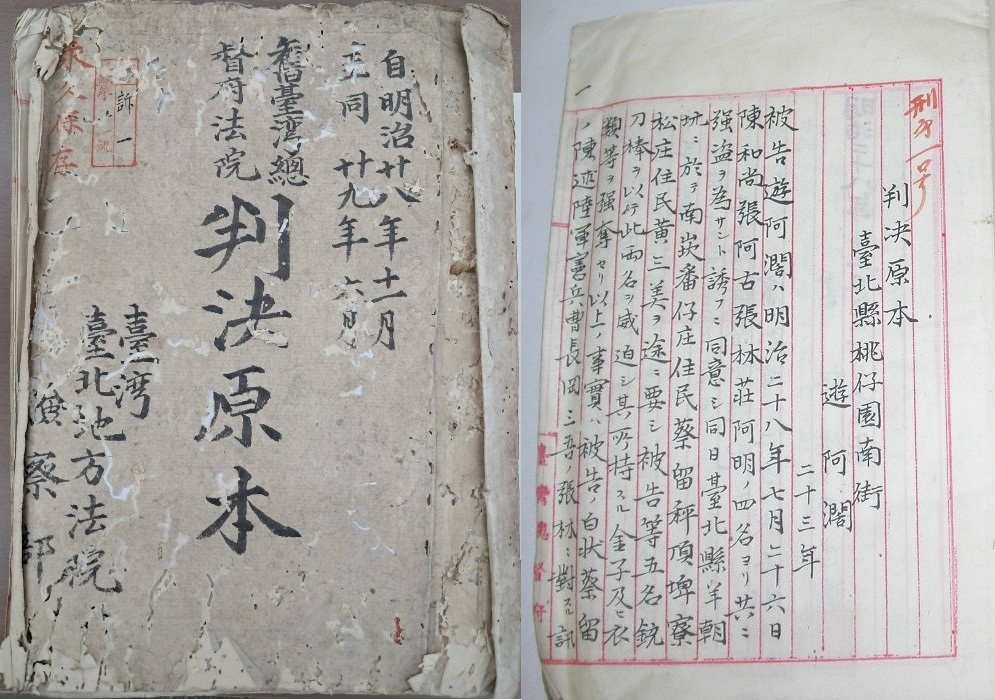 自明治廿八年十一月
至同 廿九年六月
舊臺灣總
督府法院
判決原本
臺灣
臺北地方法院
檢察部
永久保存
訴一
刑第一号
判決原本
臺北縣桃仔園南街
遊阿濶
二十三年
被告遊阿濶ハ明治二十八年七月二十六日
陳和尚張阿古張林莊阿明ノ四名ヨリ共ニ
强盗ヲ為サント誘フニ同意シ同日臺北縣羊朝
坑ニ於テ南崁番仔庄住民蔡留秤頂埤寮
松庄住民黄三美ヲ途ニ要シ被告等五名銃
刀棒ヲ以テ此両名ヲ威迫シ其所持スル金子及ヒ衣
類等ヲ强奪セリ以上ノ事實ハ被告ノ自状蔡留
ノ陳述陸軍憲兵曹長岡三吾ノ張林ニ對スル訊
一
臺灣總督府